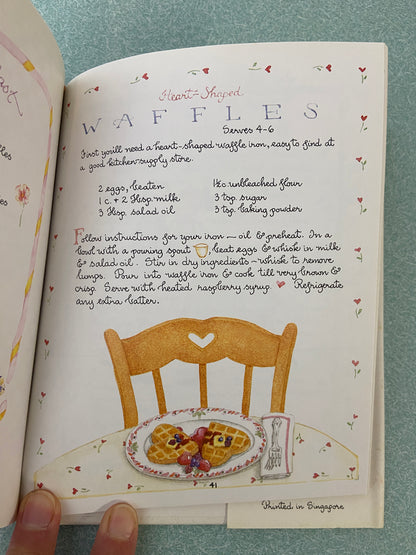 Heart-Shaped
WAFFLES
Serves 4-6
First you'll need a heart-shaped waffle iron, easy to find at
a good kitchen-supply store.
2 eggs, beaten
1 c. + 2 tbsp. milk
3 tbsp. salad oil
1½ c. unbleached flour
3 tsp. sugar
3 tsp. baking powder
Follow instructions for your iron — oil & preheat. In a
bowl with a pouring spout beat eggs & whisk in milk
& salad oil. Stir in dry ingredients - whisk to remove
lumps. Pour into waffle iron & cook till very brown &
crisp. Serve with heated raspberry syrup. Refrigerate
any extra batter.
41
Printed in Singapore